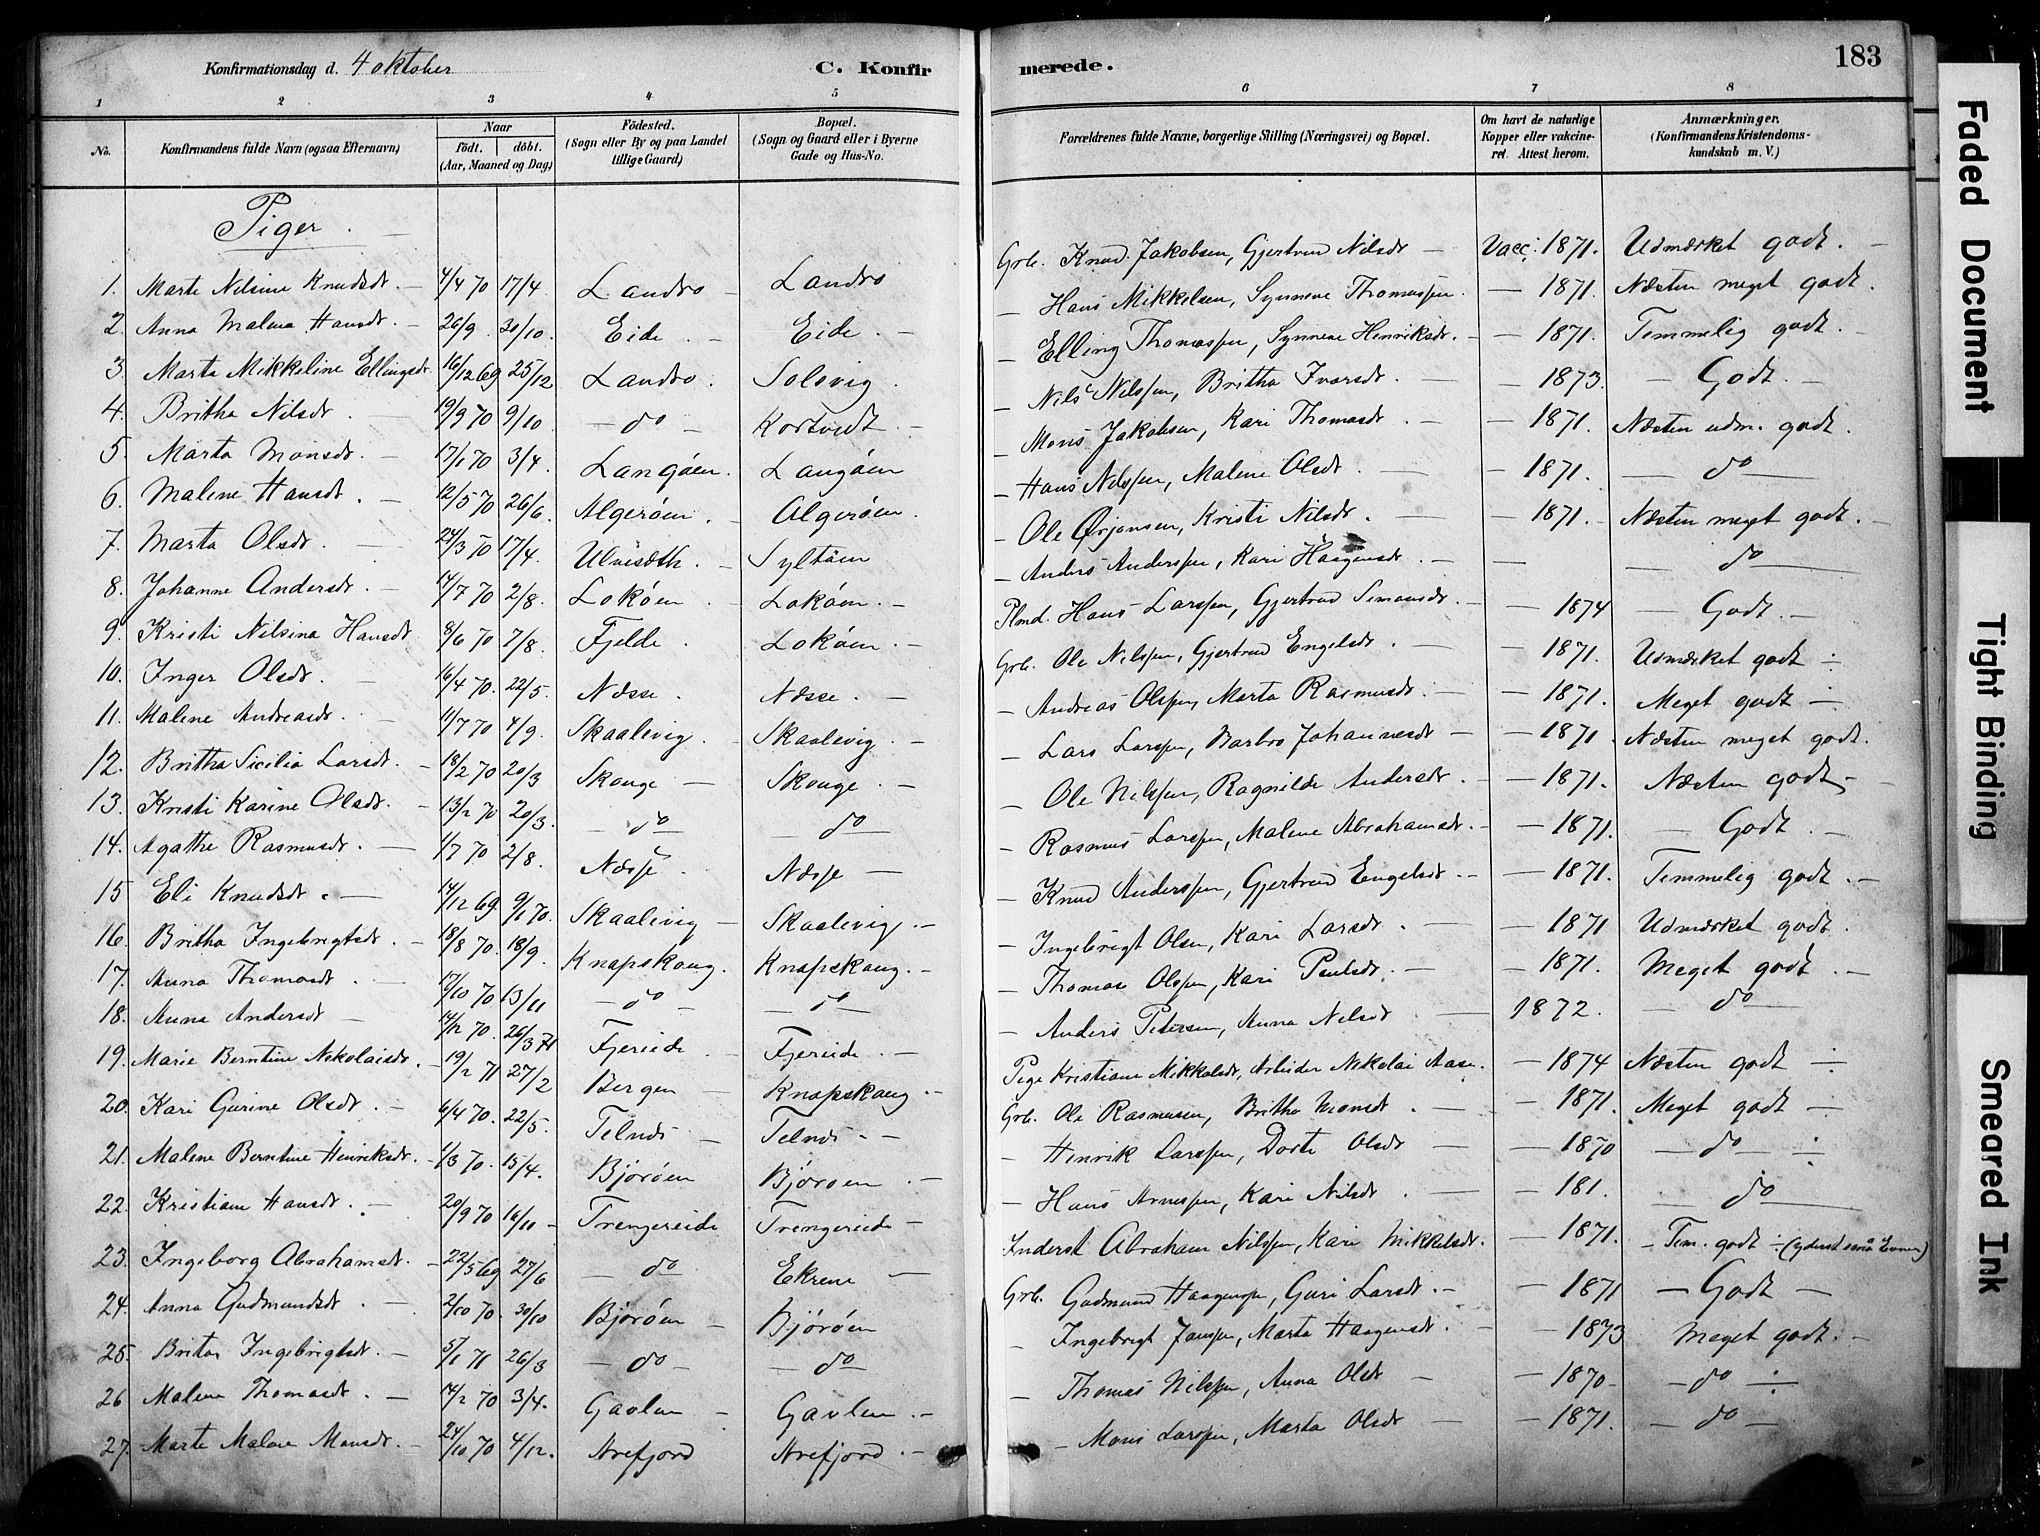 Konfirmationsdag d. 4 oktober C. Konfirmerede. 183
1 2 3 4 5 6 7 8
No. Konfirmandens fulde Navn (ogsaa Efternavn) Naar födt. döbt. (Aar, Maaned og Dag) Födested. (Sogn eller By og paa Landet tillige Gaard) Bopæl. (Sogn og Gaard eller i Byerne Gade og Hus-No. Forældrenes fulde Navne, borgerlige Stilling (Næringsvei) og Bopæl. Om havt de naturlige Kopper eller vakcineret. Attest herom. Anmærkninger, (Konfirmandens Kristendomskundskab m. V.)
Piger.
1. Marte Nilsine Knudsdt. 4/4 70 17/4 Landro Landro Grb. Knud Jakobsen, Gjertrud Nilsdt Vacc. 1871. Udmærket godt.
2. Anna Malena Hansdt. 26/9. 30/10. Eide Eide. Hans Mikkelsen, Synneve Thomassen. 1871. Næsten meget godt.
3. Marta Mikkeline Ellingsdt. 16/12 69 25/12 Landro. Solsvig. Elling Thomassen, Synneve Henriksdt. 1871. Temmelig godt.
4. Britha Nilsdt. 19/9 70 9/10 do Kortvedt Nils Nilssen, Britha Ivarsdt. 1873. Godt.
5. Marta Monsdt. 17/1 70 3/4 Langøen. Langøen Mons Jakobsen, Kari Thomasdt. 1871. Næsten udm. godt.
6. Malene Hansdt. 12/5 70 26/6. Algerøen. Algerøen. Hans Nilssen, Malene Olsdt. 1871. do
7. Marta Olsdt. 24/3 70 17/4. Ulvesæth. Syltøen Ole Ørjansen, Kristi Nilsdt. 1871. Næsten meget godt.
8. Johanne Andersdt. 14/7 70 2/8. Lokøen Lokøen. Anders Anderssen, Kari Haagensdt. do
9. Kristi Nilsina Hansdt 8/6 70 7/8. Fjelde. Lokøen. Plmd. Hans Larssen, Gjertrud Simonsdt. 1874 Godt.
10. Inger Olsdt. 16/4 70. 22/5. Næsse. Næsse. Grb. Ole Nilssen, Gjertrud Engelsdt. 1871. Udmærket godt ÷
11. Malene Andreasdt. 11/7 70 4/9. Skaalevig. Skaalevig. Andreas Olssen, Marta Rasmusdt. 1871. Meget godt
12. Britha Sicilia Larsdt. 18/2 70 20/3 Skouge Skouge. Lars Larssen, Barbro Johannesdt 1871. Næsten meget godt.
13. Kristi Karine Olsdt. 13/2 70 20/3. do do Ole Nilssen, Ragnilde Andersdt. 1871. Næsten godt
14. Agathe Rasmusdt. 1/7 70 2/8. Næsse Næsse Rasmus Larssen, Malene Abrahamsdt. 1871. Godt.
15 Eli Knudsdt. 14/12 69. 9/1 70. Skaalevig Skaalevig. Knud Anderssen, Gjertrud Engelsdt. 1871. Temmelig godt.
16. Britha Ingebrigtsdt. 18/8 70. 18/9. Knapskoug. Knapskoug. Ingebrigt Olsen, Kari Larsdt. 1871 Udmærket godt.
17. Anna Thomasdt. 17/10 70 13/11 do do Thomas Olssen, Kari Paulsdt. 1871. Meget godt.
18. Anna Andersdt 14/12 70. 26/3 71 Fjereide. Fjereide. Anders Petersen, Anna Nilsdt 1872. do
19. Marie Berntine Nikolaisdt. 19/2 71 27/2 Bergen Knapskoug. Pige Kristiane Mikkelsdt, Arbeider Nikolai Aase. 1874 Næsten godt ÷
20. Kari Gurine Olsdt. 6/4 70. 22/5. Telnes Telnes. Grb. Ole Rasmussen, Britha Monsdt. 1871. Meget godt
21. Malene Berntine Henriksdt. 1/3 70. 15/4. Bjorøen Bjørøen Henrik Larssen, Dorte Olsdt 1870 do ÷
22. Kristiane Hansdt. 20/9 70 16/10 Trengereide Trengereide Hans Arnessen, Kari Nilsdt. 181. do
23. Ingeborg Abrahamsdt. 22/5 69 27/6 do Ekrene Inderst Abraham Nilssen, Kari Mikkelsdt. 1871. Tem. godt ÷ (yderst små Evner)
24. Anna Gudmundsdt. 2/10 70. 30/10 Bjorøen Bjørøen Grb. Gudmund Haagensen, Guri Larsdt. 1871 Godt
25. Brita Ingebrigtsdt. 5/1 71 26/3 do do Ingebrigt Janssen, Marta Haagensdt. 1873 Meget godt.
26 Malene Thomasdt. 14/2 70 3/4. Gavlen Gavlen. Thomas Nilssen, Anna Olsdt 1870 do ÷
27. Marte Malene Monsdt. 24/10 70 4/12. Arefjord Arefjord. Mons Larssen, Marta Olsdt 1871. do
Faded Document
Tight Binding
Smeared Ink